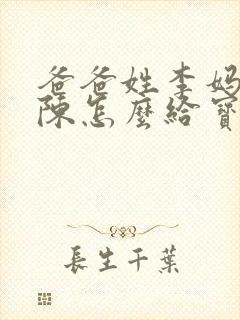 爸爸姓李妈
陈怎麼給寶
長生千葉